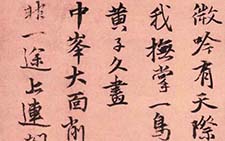 微吟有天際
我撫掌一鳥
黃子久畫
中峯大面削
一途上連